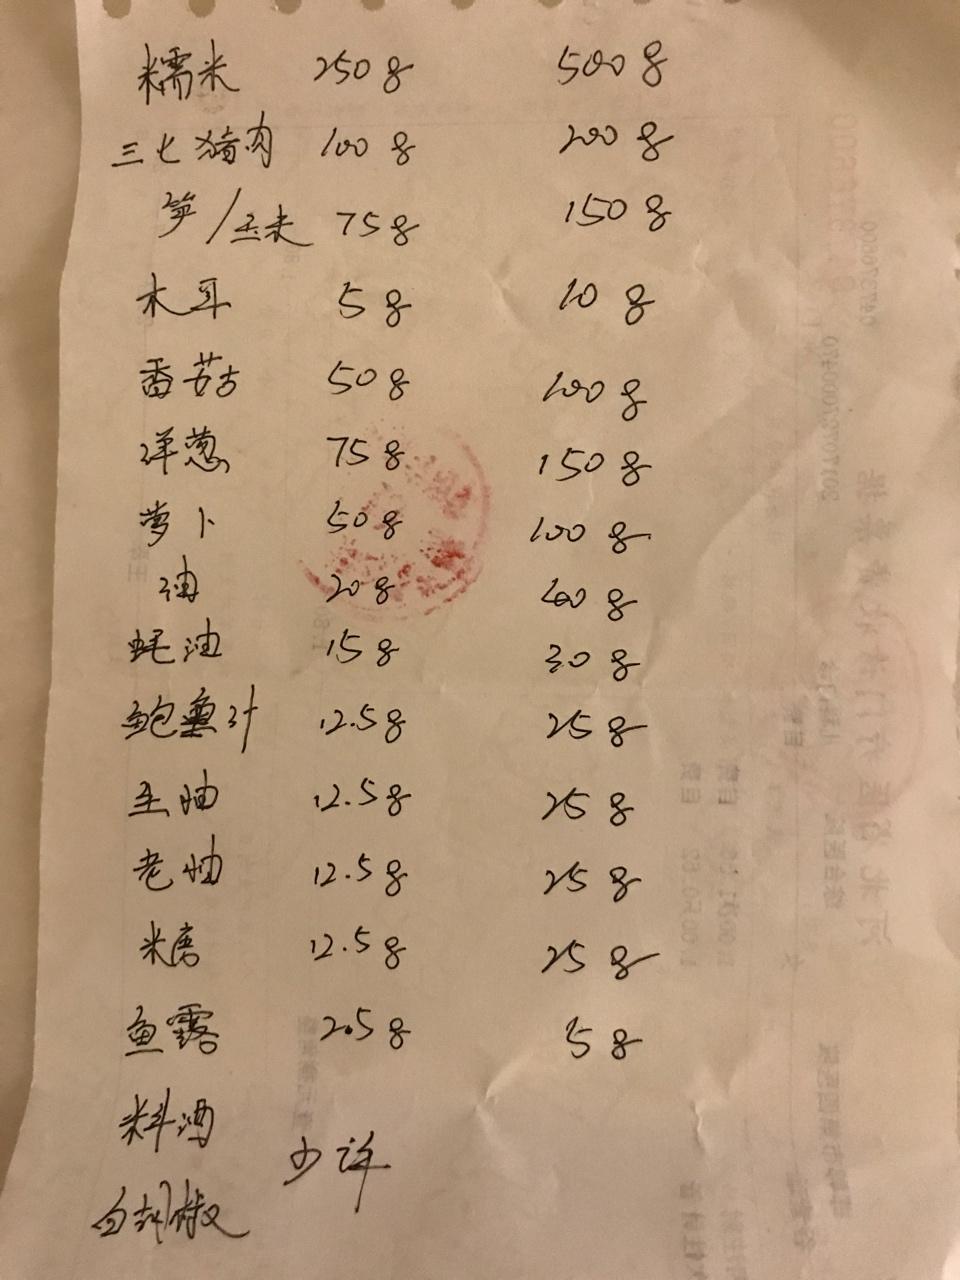 糯米 250g 500g
三七猪肉 100g 200g
笋/玉米 75g 150g
木耳 5g 10g
香菇 50g 100g
洋葱 75g 150g
萝卜 50g 100g
油 20g 40g
蚝油 15g 30g
鲍鱼汁 12.5g 25g
生抽 12.5g 25g
老抽 12.5g 25g
米唐 12.5g 25g
鱼露 2.5g 5g
料酒
少许
白胡椒